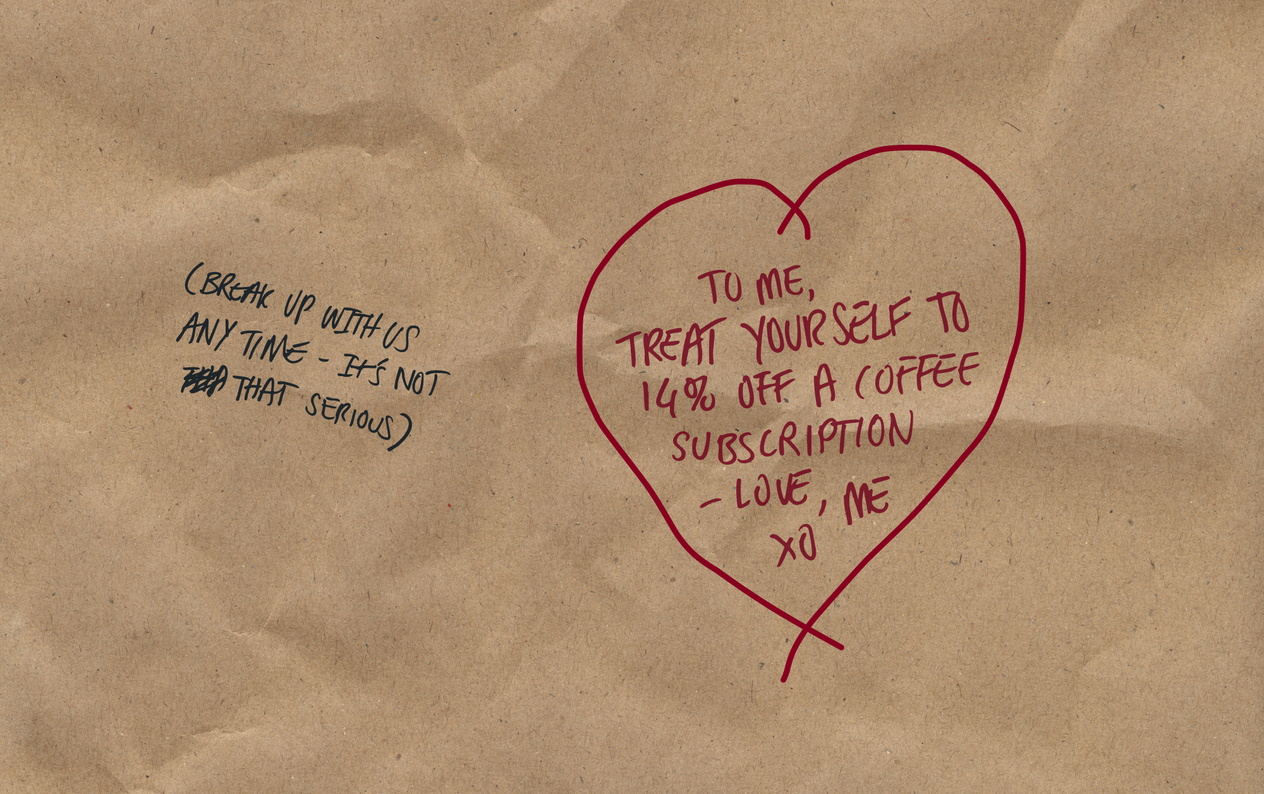 (BREAK UP WITH US
ANY TIME - It's NOT
THAT SERIOUS)
TO ME,
TREAT YOURSELF TO
14% OFF A COFFEE
SUBSCRIPTION
- LOVE, ME
XO